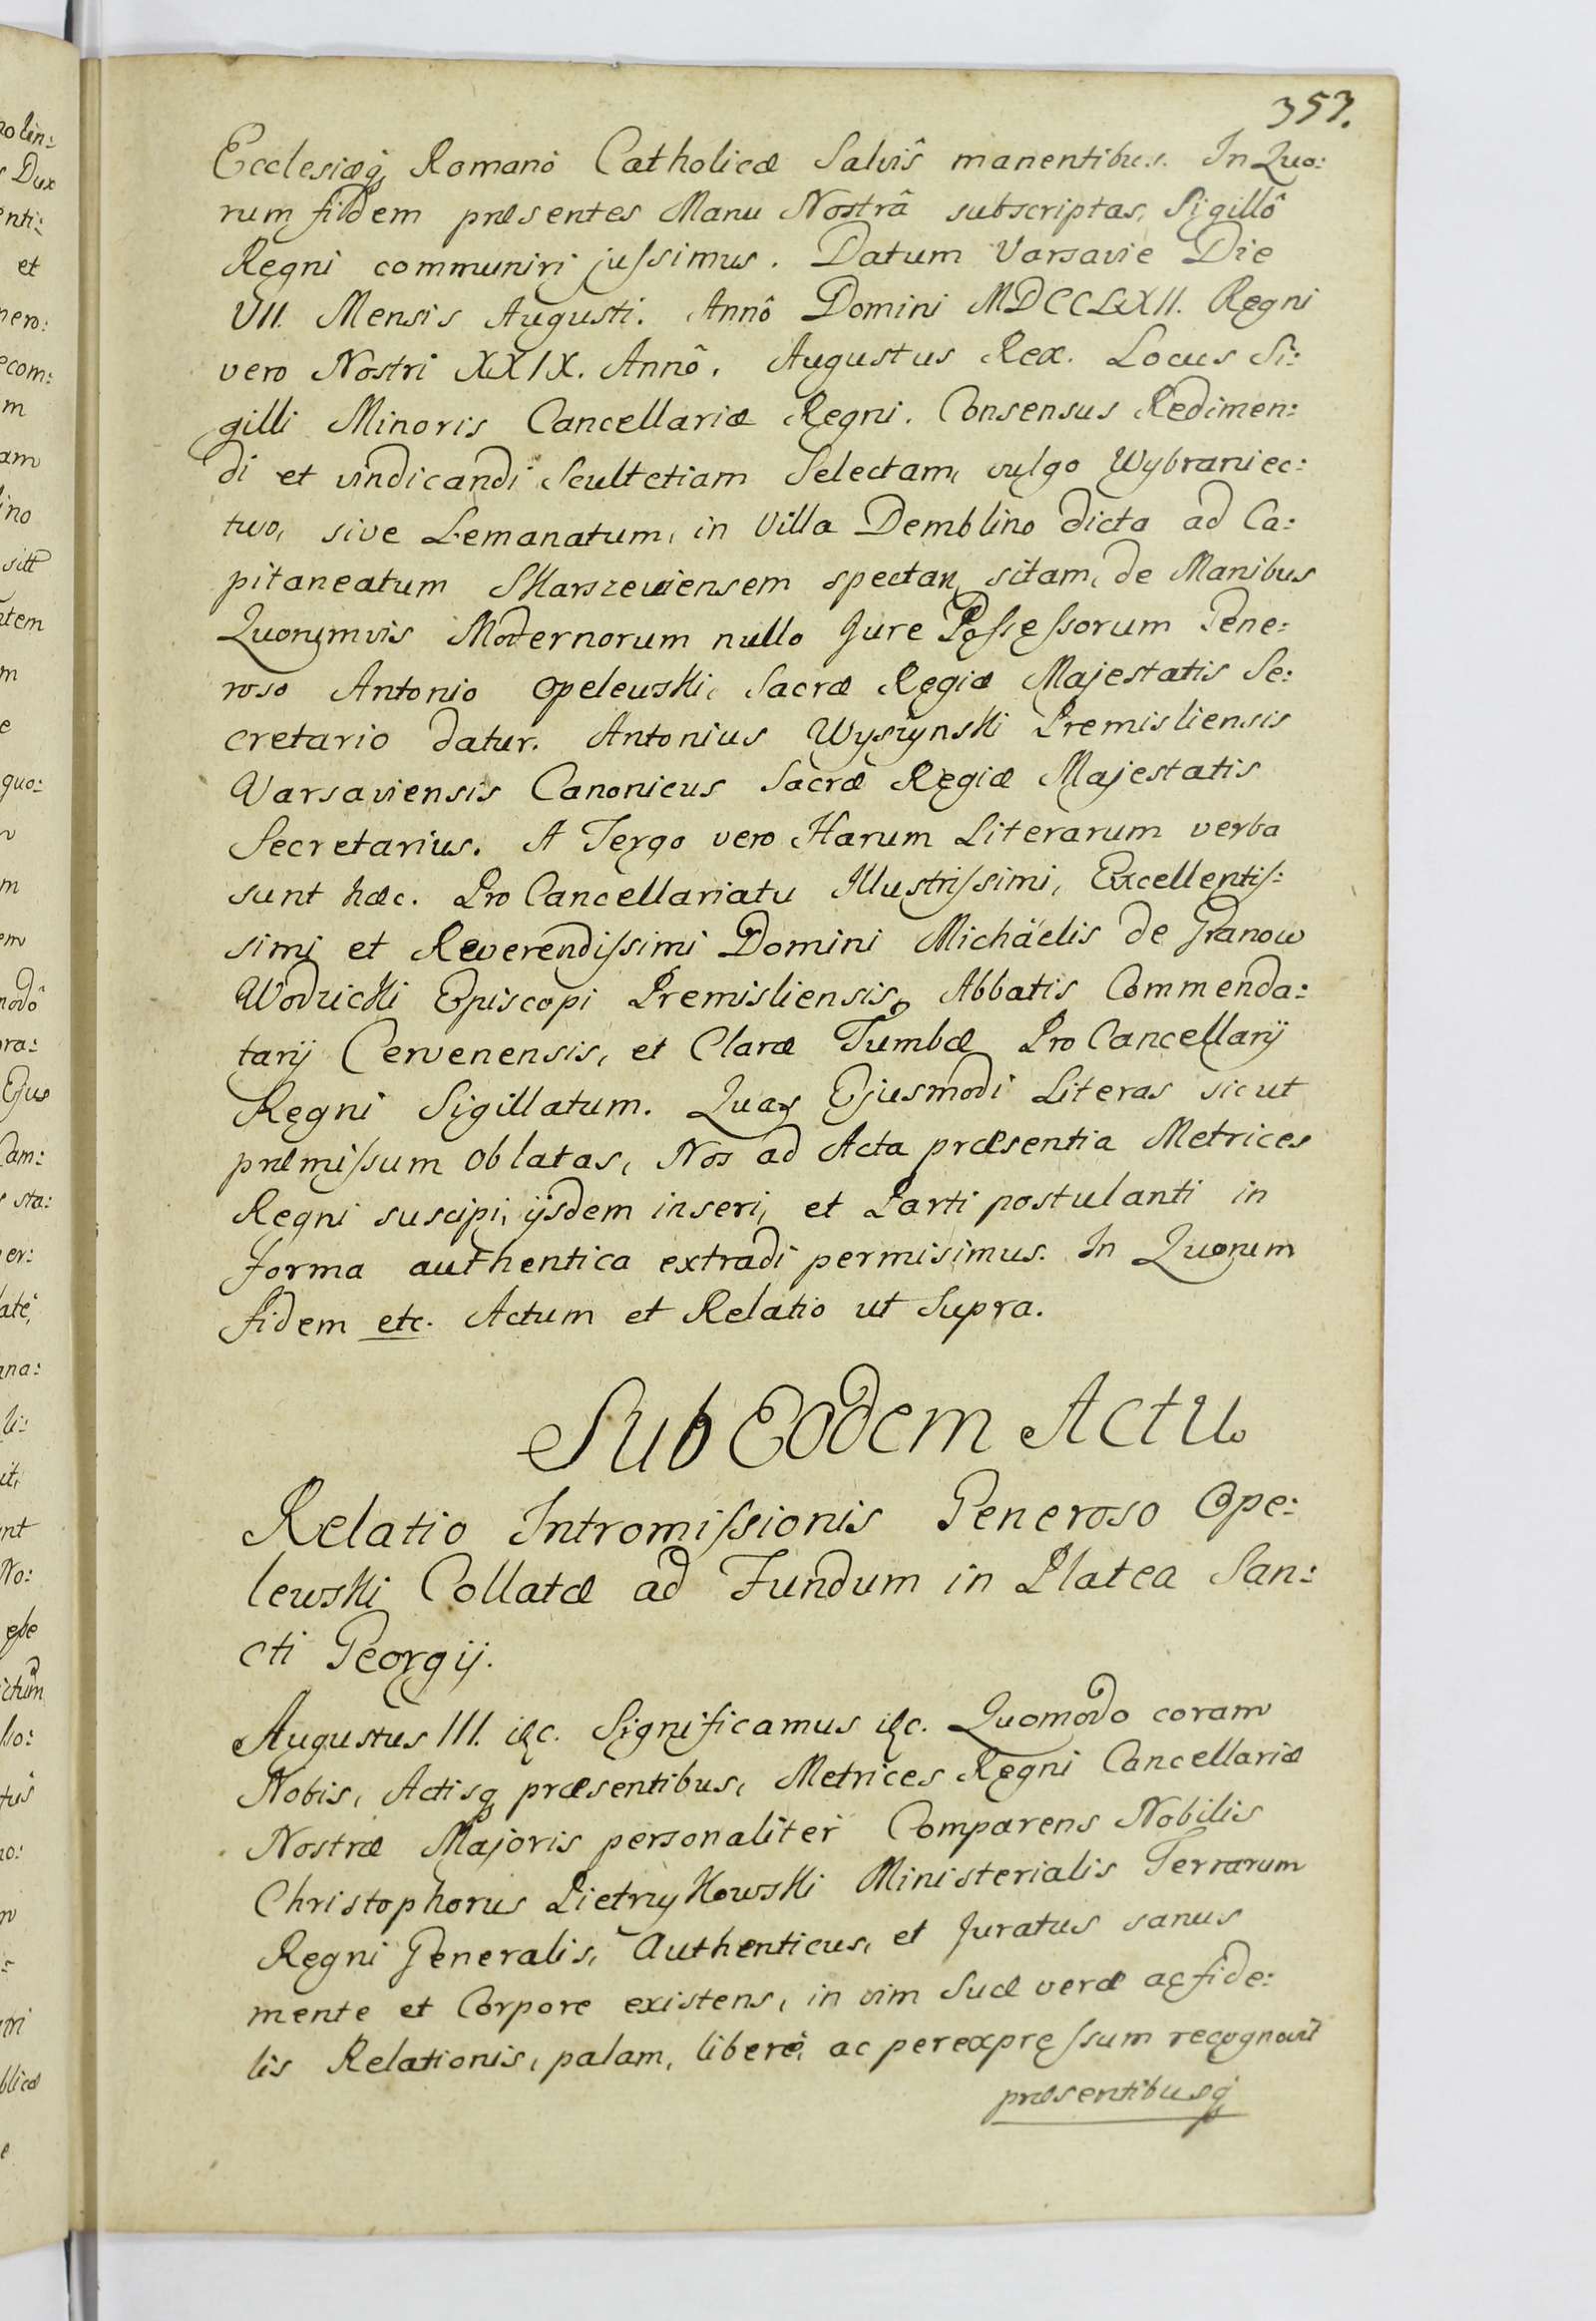 353.
Ecclesiæq́ Romano Catholicæ Salvîs manentibus. In Quo:
rum fidem præsentes Manu Nostrâ subscriptas, Sigillô
Regni communiri jussimus. Datum Varsavie Die
VII. Mensis Augusti. Annô Domini MDCCLXII. Regni
vero Nostri XXIX. Annô. Augustus Rex. Locus Si:
gilli Minoris Cancellariæ Regni. Consensus Redimen:
di et vindicandi Scultetiam Selectam, vulgo Wybraniec:
two, sive Lemanatum, in Villa Demblino dicta ad Ca:
pitaneatum Skarszeviensem spectan, sitam, de Manibus
Quorumvis Modernorum nullo Jure Possessorum Gene:
roso Antonio Opelewski, Sacræ Regiæ Majestatis Se:
cretario datur. Antonius Wyszynski Premisliensis
Varsaviensis Canonicus Sacræ Regiæ Majestatis
Secretarius. A Tergo vero Harum Literarum verba
sunt hæc. Pro Cancellariatu Illustrissimi, Excellentis:
simi et Reverendissimi Domini Michäelis de Granow
Wodzicki Episcopi Premisliensis, Abbatis Commenda:
tarij Cervenensis, et Claræ Tumbæ Pro Cancellarij
Regni Sigillatum. Quas Ejusmodi Literas sicut
præmissum oblatas, Nos ad Acta præsentia Metrices
Regni suscipi, ijsdem inseri, et Parti postulanti in
forma authentica extradi permisimus. In Quorum
fidem etc. Actum et Relatio ut Supra.
Sub Eodem Actu
Relatio Intromissionis Generoso Ope:
lewski Collatæ ad Fundum in Platea San:
cti Georgij.
Augustus III. etc. Significamus etc. Quomodo coram
Nobis, Actisq præsentibus, Metrices Regni Cancellariæ
Nostræ Majoris personaliter Comparens Nobilis
Christophorus Pietrzykowski Ministerialis Terrarum
Regni Generalis, Authenticus, et Juratus sanus
mente et Corpore existens, in vim Suæ veræ ac fide:
lis Relationis, palam, liberè, ac per expressum recognovit
præsentibusq́